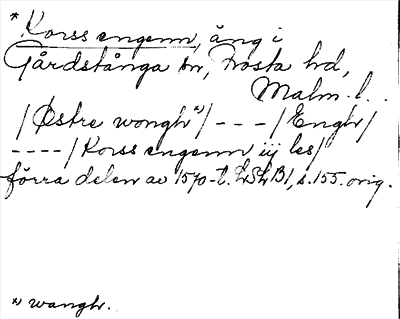 * Korssengenn, äng i
Gårdstånga sn, Frosta hd,
Malm. l.
/Østre wongh*)/ - - - /Engh/
- - - - /Korssengenn iij les/
förra delen av 1570-t. LSk B1, s. 155. orig.
*) wangh.